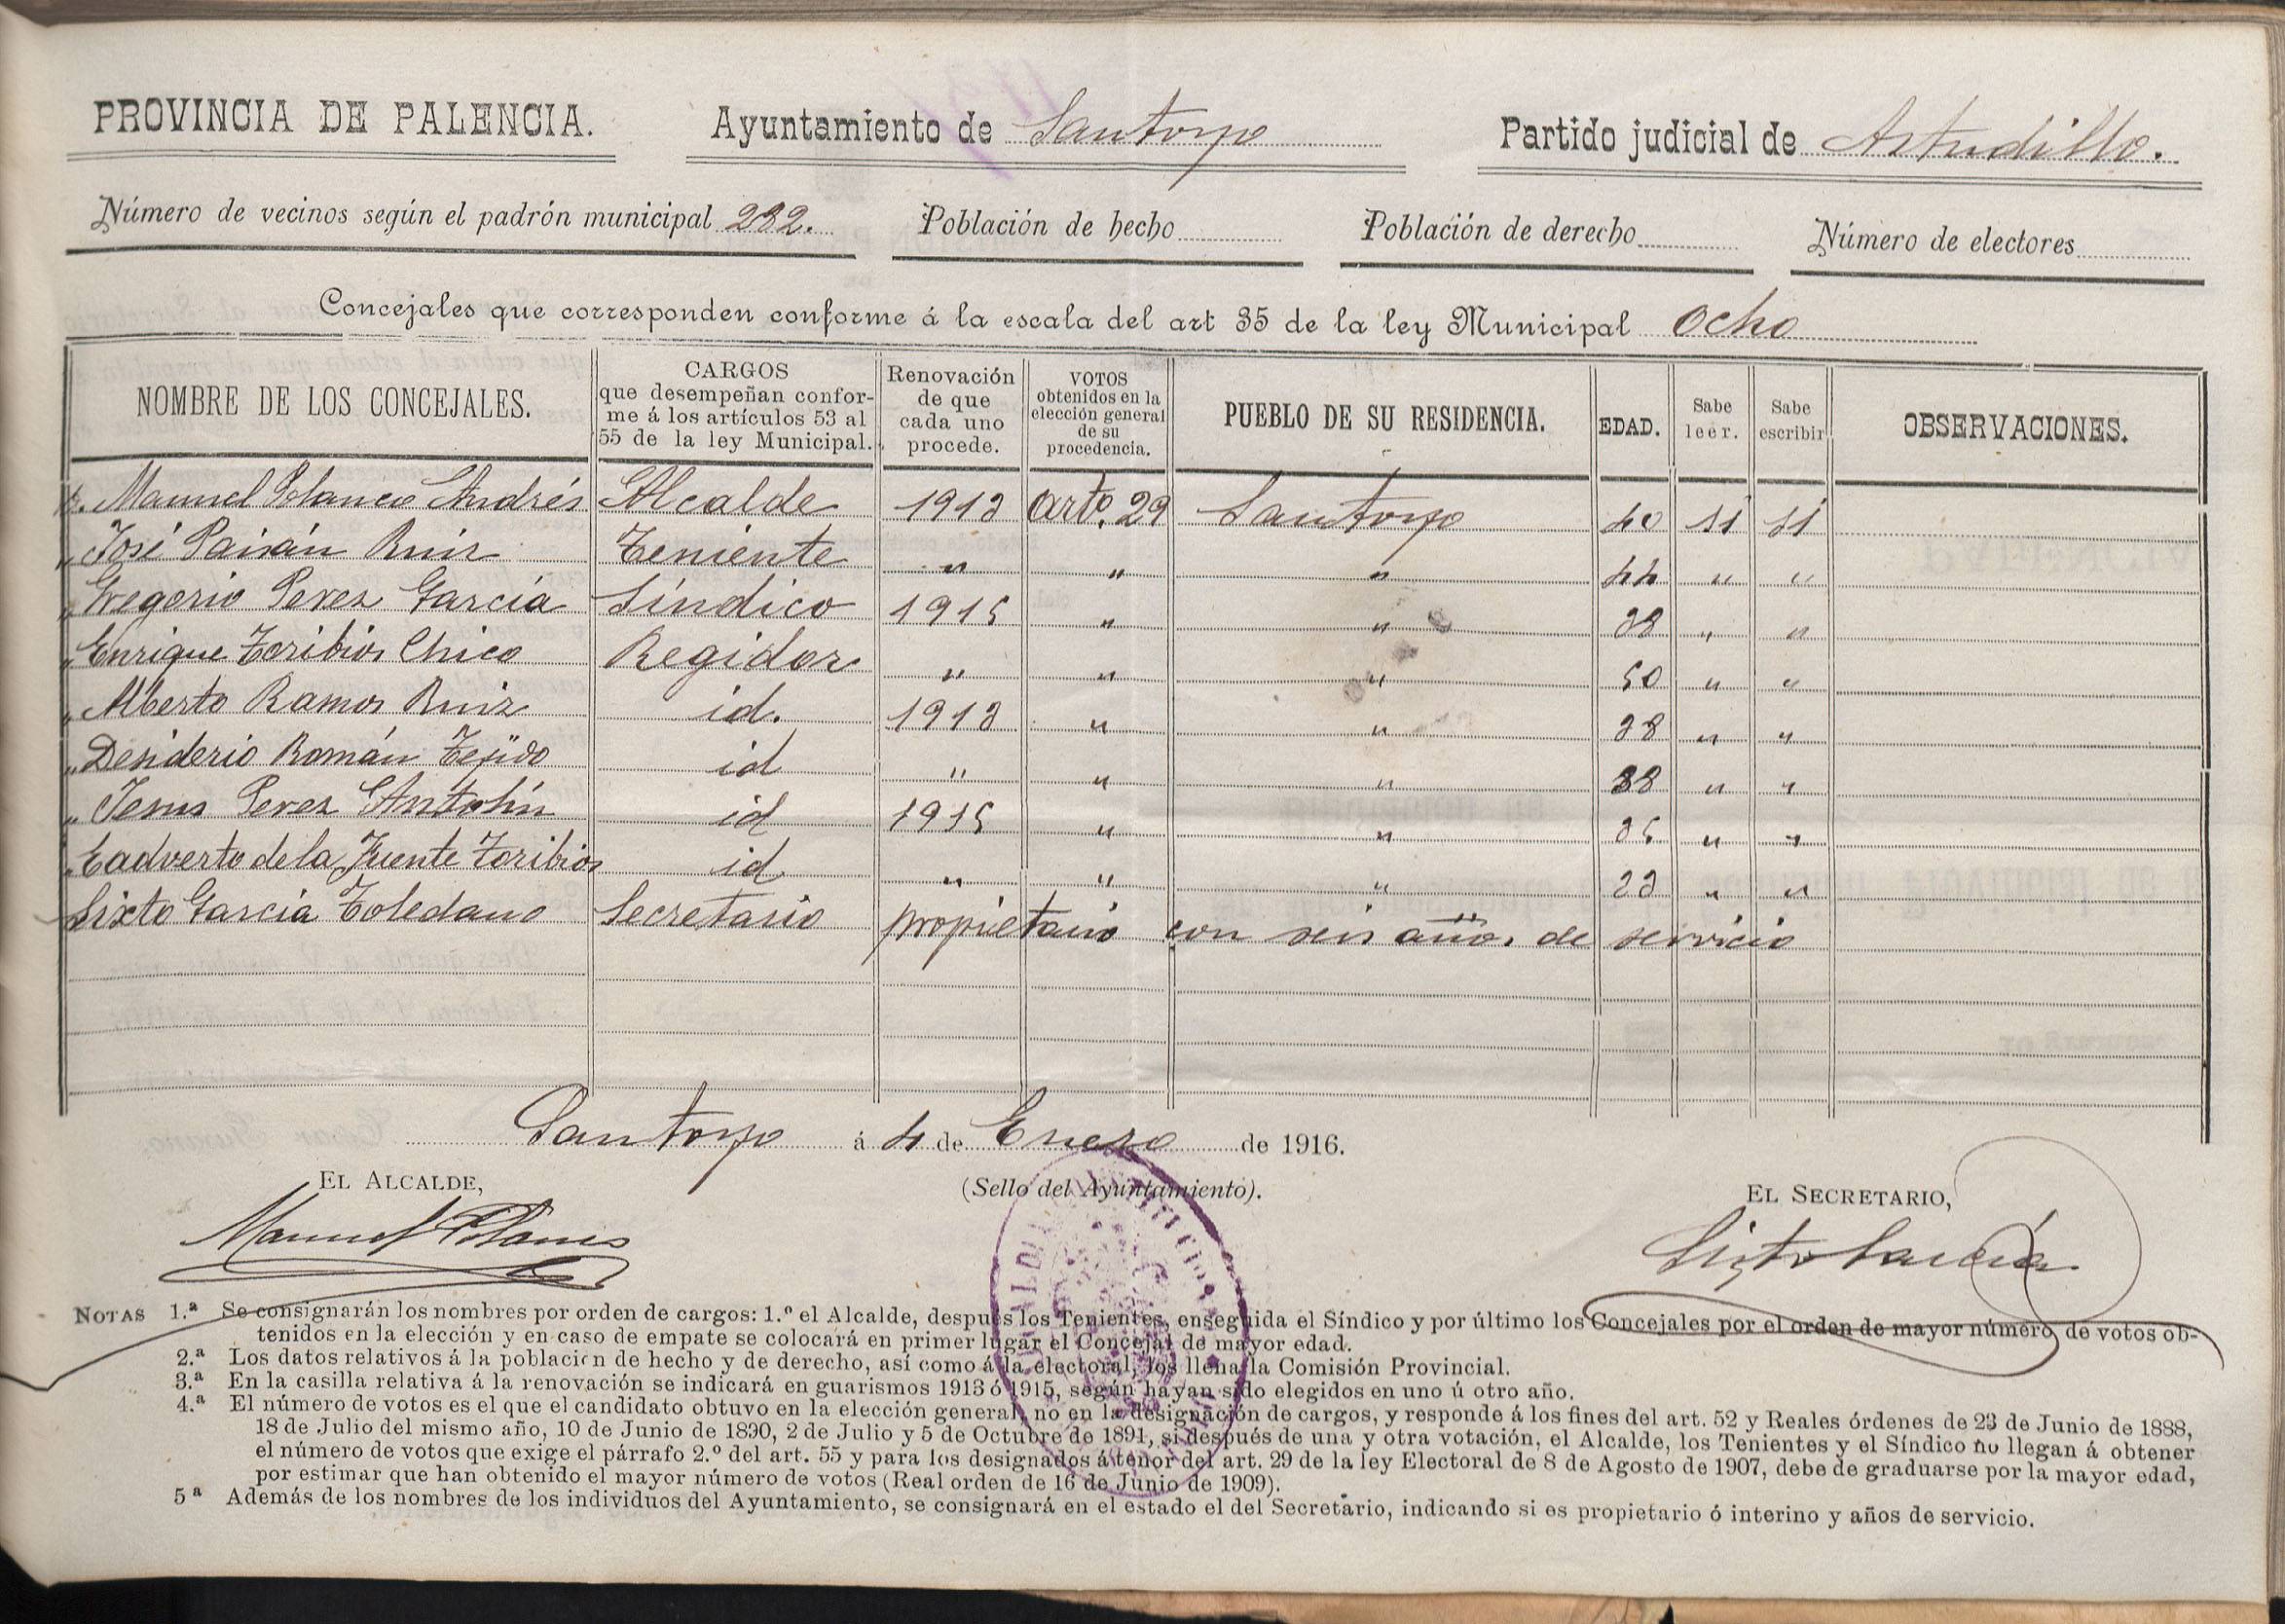 PROVINCIA DE PALENCIA. Ayuntamiento de Santoyo Partido judicial de Astudillo.
Número de vecinos según el padrón municipal 282. Población de hecho Población de derecho Número de electores
Concejales que corresponden conforme á la escala del art 35 de la ley Municipal Ocho
NOMBRE DE LOS CONCEJALES. CARGOS que desempeñan conforme á los artículos 53 al 55 de la ley Municipal. Renovación de que cada uno procede. VOTOS obtenidos en la elección general de su procedencia. PUEBLO DE SU RESIDENCIA. EDAD. Sabe leer. Sabe escribir OBSERVACIONES.
D. Manuel Polanco Andrés Alcalde 1913 artº. 29 Santoyo 40 si si
" José Paisán Ruiz Teniente " " " 44 " "
" Gregorio Perez García Síndico 1915 " " 38 " "
" Enrique Toribios Chico Regidor " " " 50 " "
" Alberto Ramos Ruiz id. 1913 " " 38 " "
" Desiderio Román Tejido id " " " 38 " "
" Jesus Perez Antolín id 1915 " " 35 " "
" Eadverto de la Fuente Toribios id " " " 33 " "
Sixto García Toledano Secretario propietario con seis años de servicio
Santoyo á 4 de Enero de 1916.
EL ALCALDE, (Sello del Ayuntamiento). EL SECRETARIO,
Manuel Polanco Sixto García
NOTAS 1.ª Se consignarán los nombres por orden de cargos: 1.º el Alcalde, después los Tenientes, enseguida el Síndico y por último los Concejales por el orden de mayor número de votos ob-
tenidos en la elección y en caso de empate se colocará en primer lugar el Concejal de mayor edad.
2.ª Los datos relativos á la población de hecho y de derecho, así como á la electoral, los llena la Comisión Provincial.
3.ª En la casilla relativa á la renovación se indicará en guarismos 1913 ó 1915, según hayan sido elegidos en uno ú otro año.
4.ª El número de votos es el que el candidato obtuvo en la elección general, no en la designación de cargos, y responde á los fines del art. 52 y Reales órdenes de 23 de Junio de 1888,
18 de Julio del mismo año, 10 de Junio de 1890, 2 de Julio y 5 de Octubre de 1891, si después de una y otra votación, el Alcalde, los Tenientes y el Síndico no llegan á obtener
el número de votos que exige el párrafo 2.º del art. 55 y para los designados á tenor del art. 29 de la ley Electoral de 8 de Agosto de 1907, debe de graduarse por la mayor edad,
por estimar que han obtenido el mayor número de votos (Real orden de 16 de Junio de 1909).
5ª Además de los nombres de los individuos del Ayuntamiento, se consignará en el estado el del Secretario, indicando si es propietario ó interino y años de servicio.